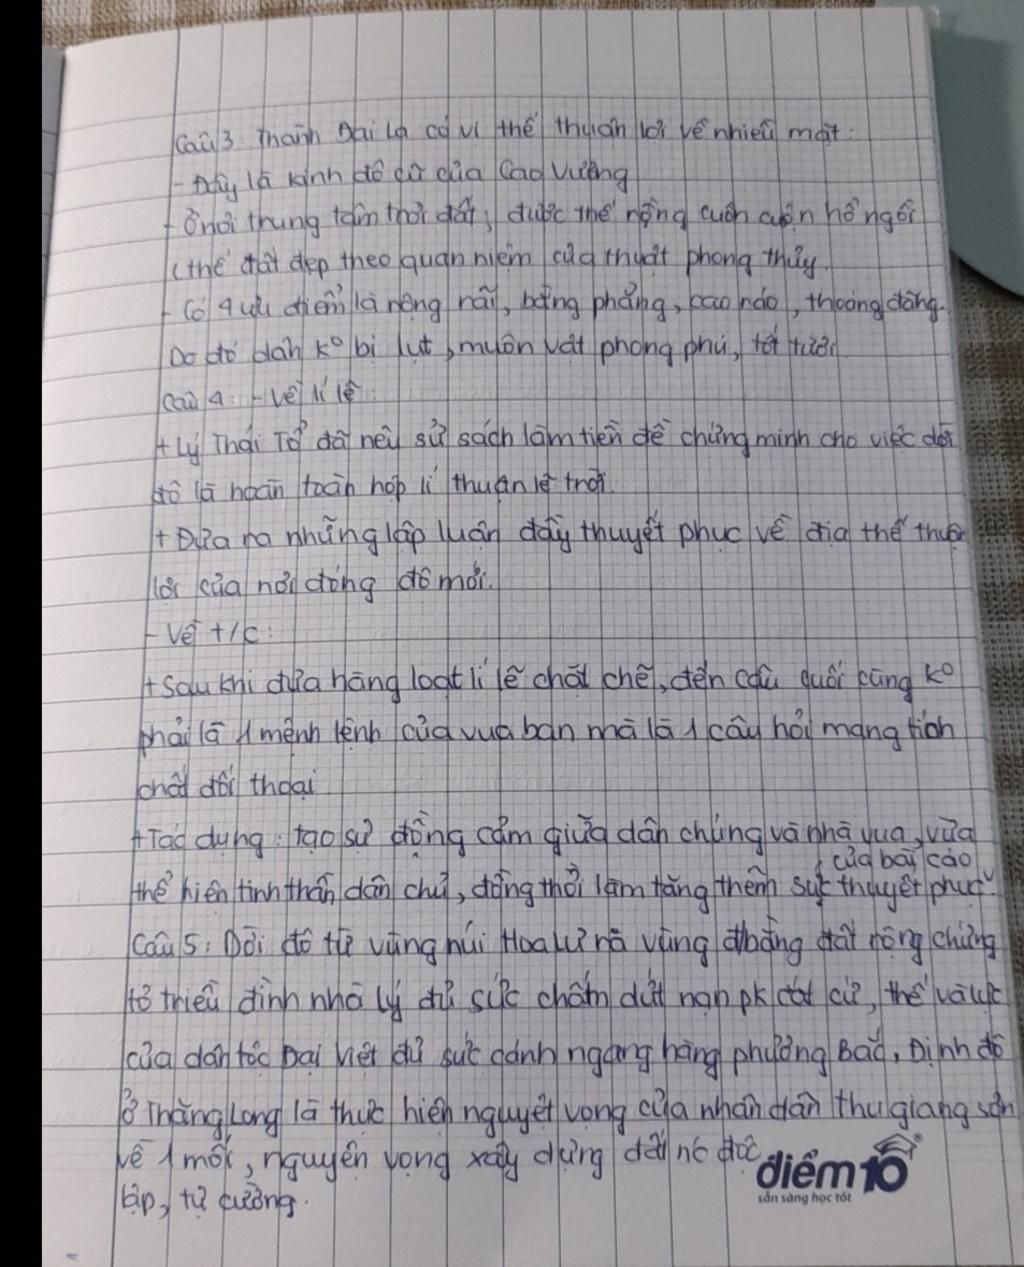 Câu 3 Thành Đại La có vị thế thuận lợi về nhiều mặt:
- Đây là kinh đô cũ của Cao Vương
- Ở nơi trung tâm trời đất, được thế rộng cuộn hổ ngồi
(thế đất đẹp theo quan niệm của thuật phong thủy
- Có 4 ưu điểm là rộng rãi, bằng phẳng, cao ráo, thoáng đãng.
Do đó dân ko bị lụt, muôn vật phong phú, tốt tươi
Câu 4: - Về lí lẽ:
+ Lý Thái Tổ đã nêu sử sách làm tiền đề chứng minh cho việc dời
đô là hoàn toàn hợp lí thuận lẽ trời.
+ Đưa ra những lập luận đầy thuyết phục về địa thế thuận
lợi của nơi đóng đô mới.
- Về t/c:
+ Sau khi đưa hàng loạt lí lẽ chặt chẽ, đến câu cuối cùng ko
phải là 1 mệnh lệnh của vua ban mà là 1 câu hỏi mang tính
chất đối thoại
+ Tác dụng: tạo sự đồng cảm giữa dân chúng và nhà vua, vừa
của bài cáo
thể hiện tinh thần dân chủ, đồng thời làm tăng thêm sức thuyết phục
Câu 5: Dời đô từ vùng núi Hoa Lư ra vùng đbằng đất rộng chứng
tỏ triều đình nhà Lý đủ sức chấm dứt nạn pk cát cứ, thế và lực
của dân tộc Đại Việt đủ sức sánh ngang hàng phương Bắc, Định đô
ở Thăng Long là thực hiện nguyệt vọng của nhân dân thu giang sơn
về 1 mối, nguyện vọng xây dựng đất nc độc
lập, tự cường.
điểm10
sẵn sàng học tốt